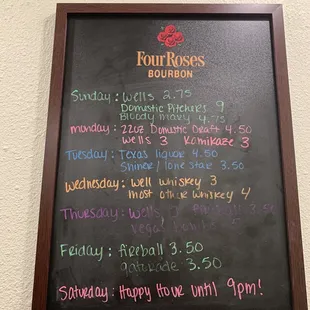 Four Roses
BOURBON
Sunday: Wells 2.75
Domestic Pitchers 9
Bloody mary 4.75
munday: 22oz Domestic Draft 4.50
Wells 3 Kamikaze 3
Tuesday: Texas liquor 4.50
Shiner/lone star 3.50
Wednesday: well whiskey 3
most other whiskey 4
Thursday: Wells
Friday: fireball 3.50
gatorade 3.50
Saturday: Happy Hour until 9pm!